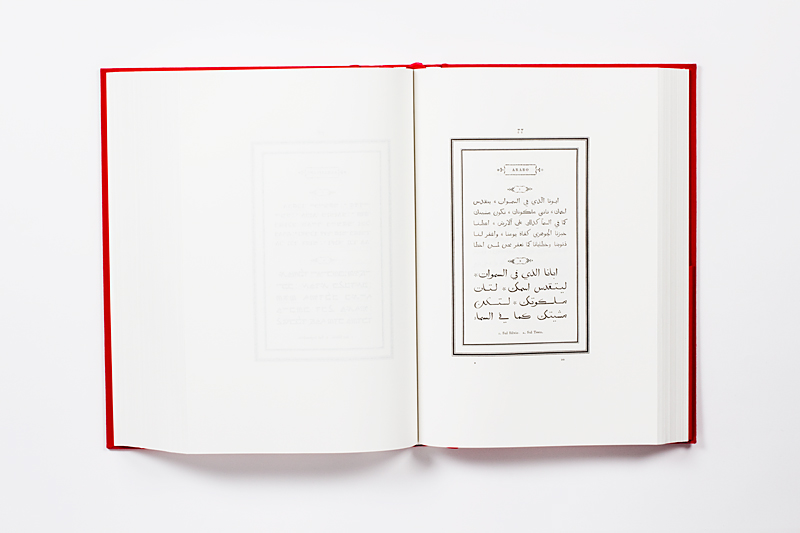 ARABO
ابونا الذي في السموات * يتقدس
اسمك * تاتي ملكوتك * تكون مشيتك
كما في السما كذلك على الارض * اعطينا
خبزنا الجوهري كفاة يومنا * واغفر لنا
ذنوبنا وخطايانا كما نغفر نحن لمن اخطا
ابانا الذي في السموات *
ليتقدس اسمك * لتات
ملكوتك * لتكن
مشيتك كما في السما
1. Sul 2. Sul